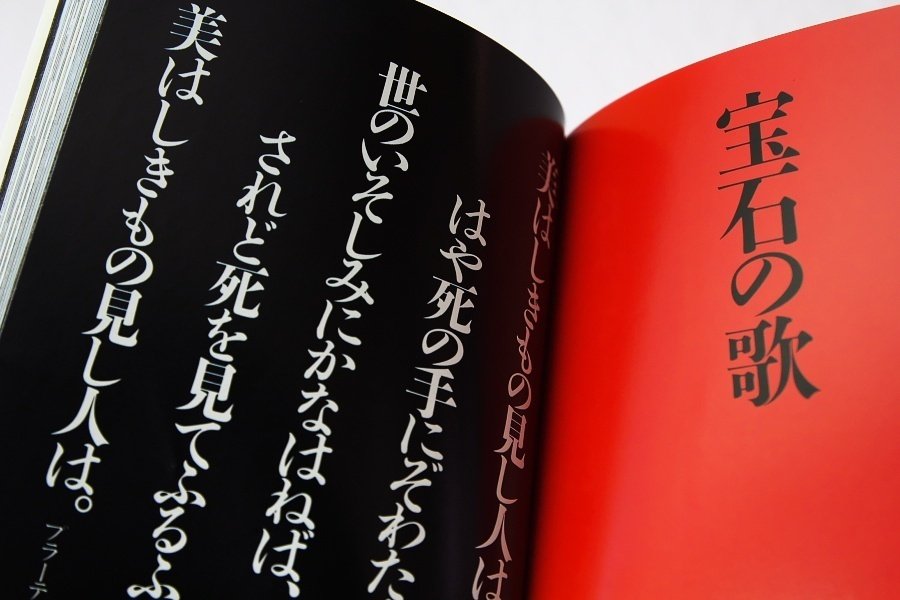 宝石の歌
美はしきもの見し人は
はや死の手にぞわた
世のいそしみにかなはねば、
されど死を見てふるふ
美はしきもの見し人は。
プラーテ